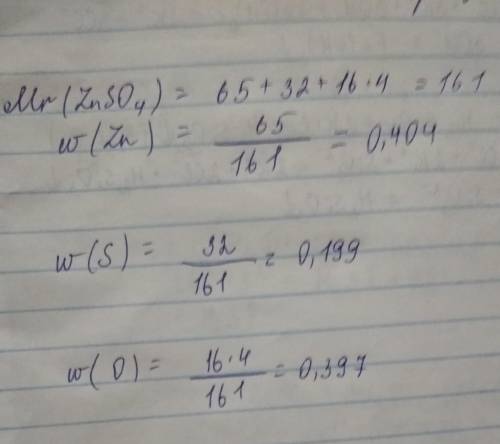 Mr(ZnSO₄) = 65+32+16·4 = 161
w(Zn) = 65/161 = 0,404
w(S) = 32/161 = 0,199
w(O) = 16·4/161 = 0,397